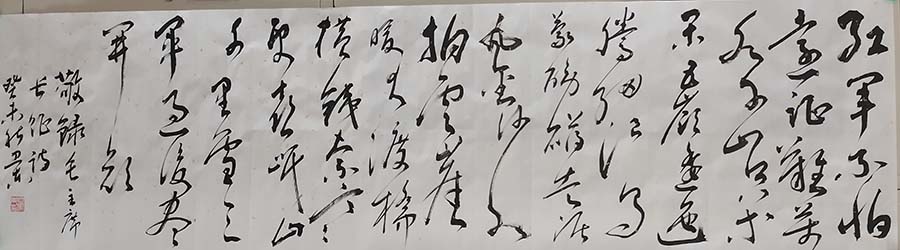 红军不怕
远征難萬
水千山只等
闲五嶺逶迤
腾细浪乌
蒙磅礴走泥
丸金沙水
拍雲崖
暖大渡桥
横铁索寒
更喜岷山
千里雪三
军过後尽
开颜
敬録毛主席
长征诗
癸未秋